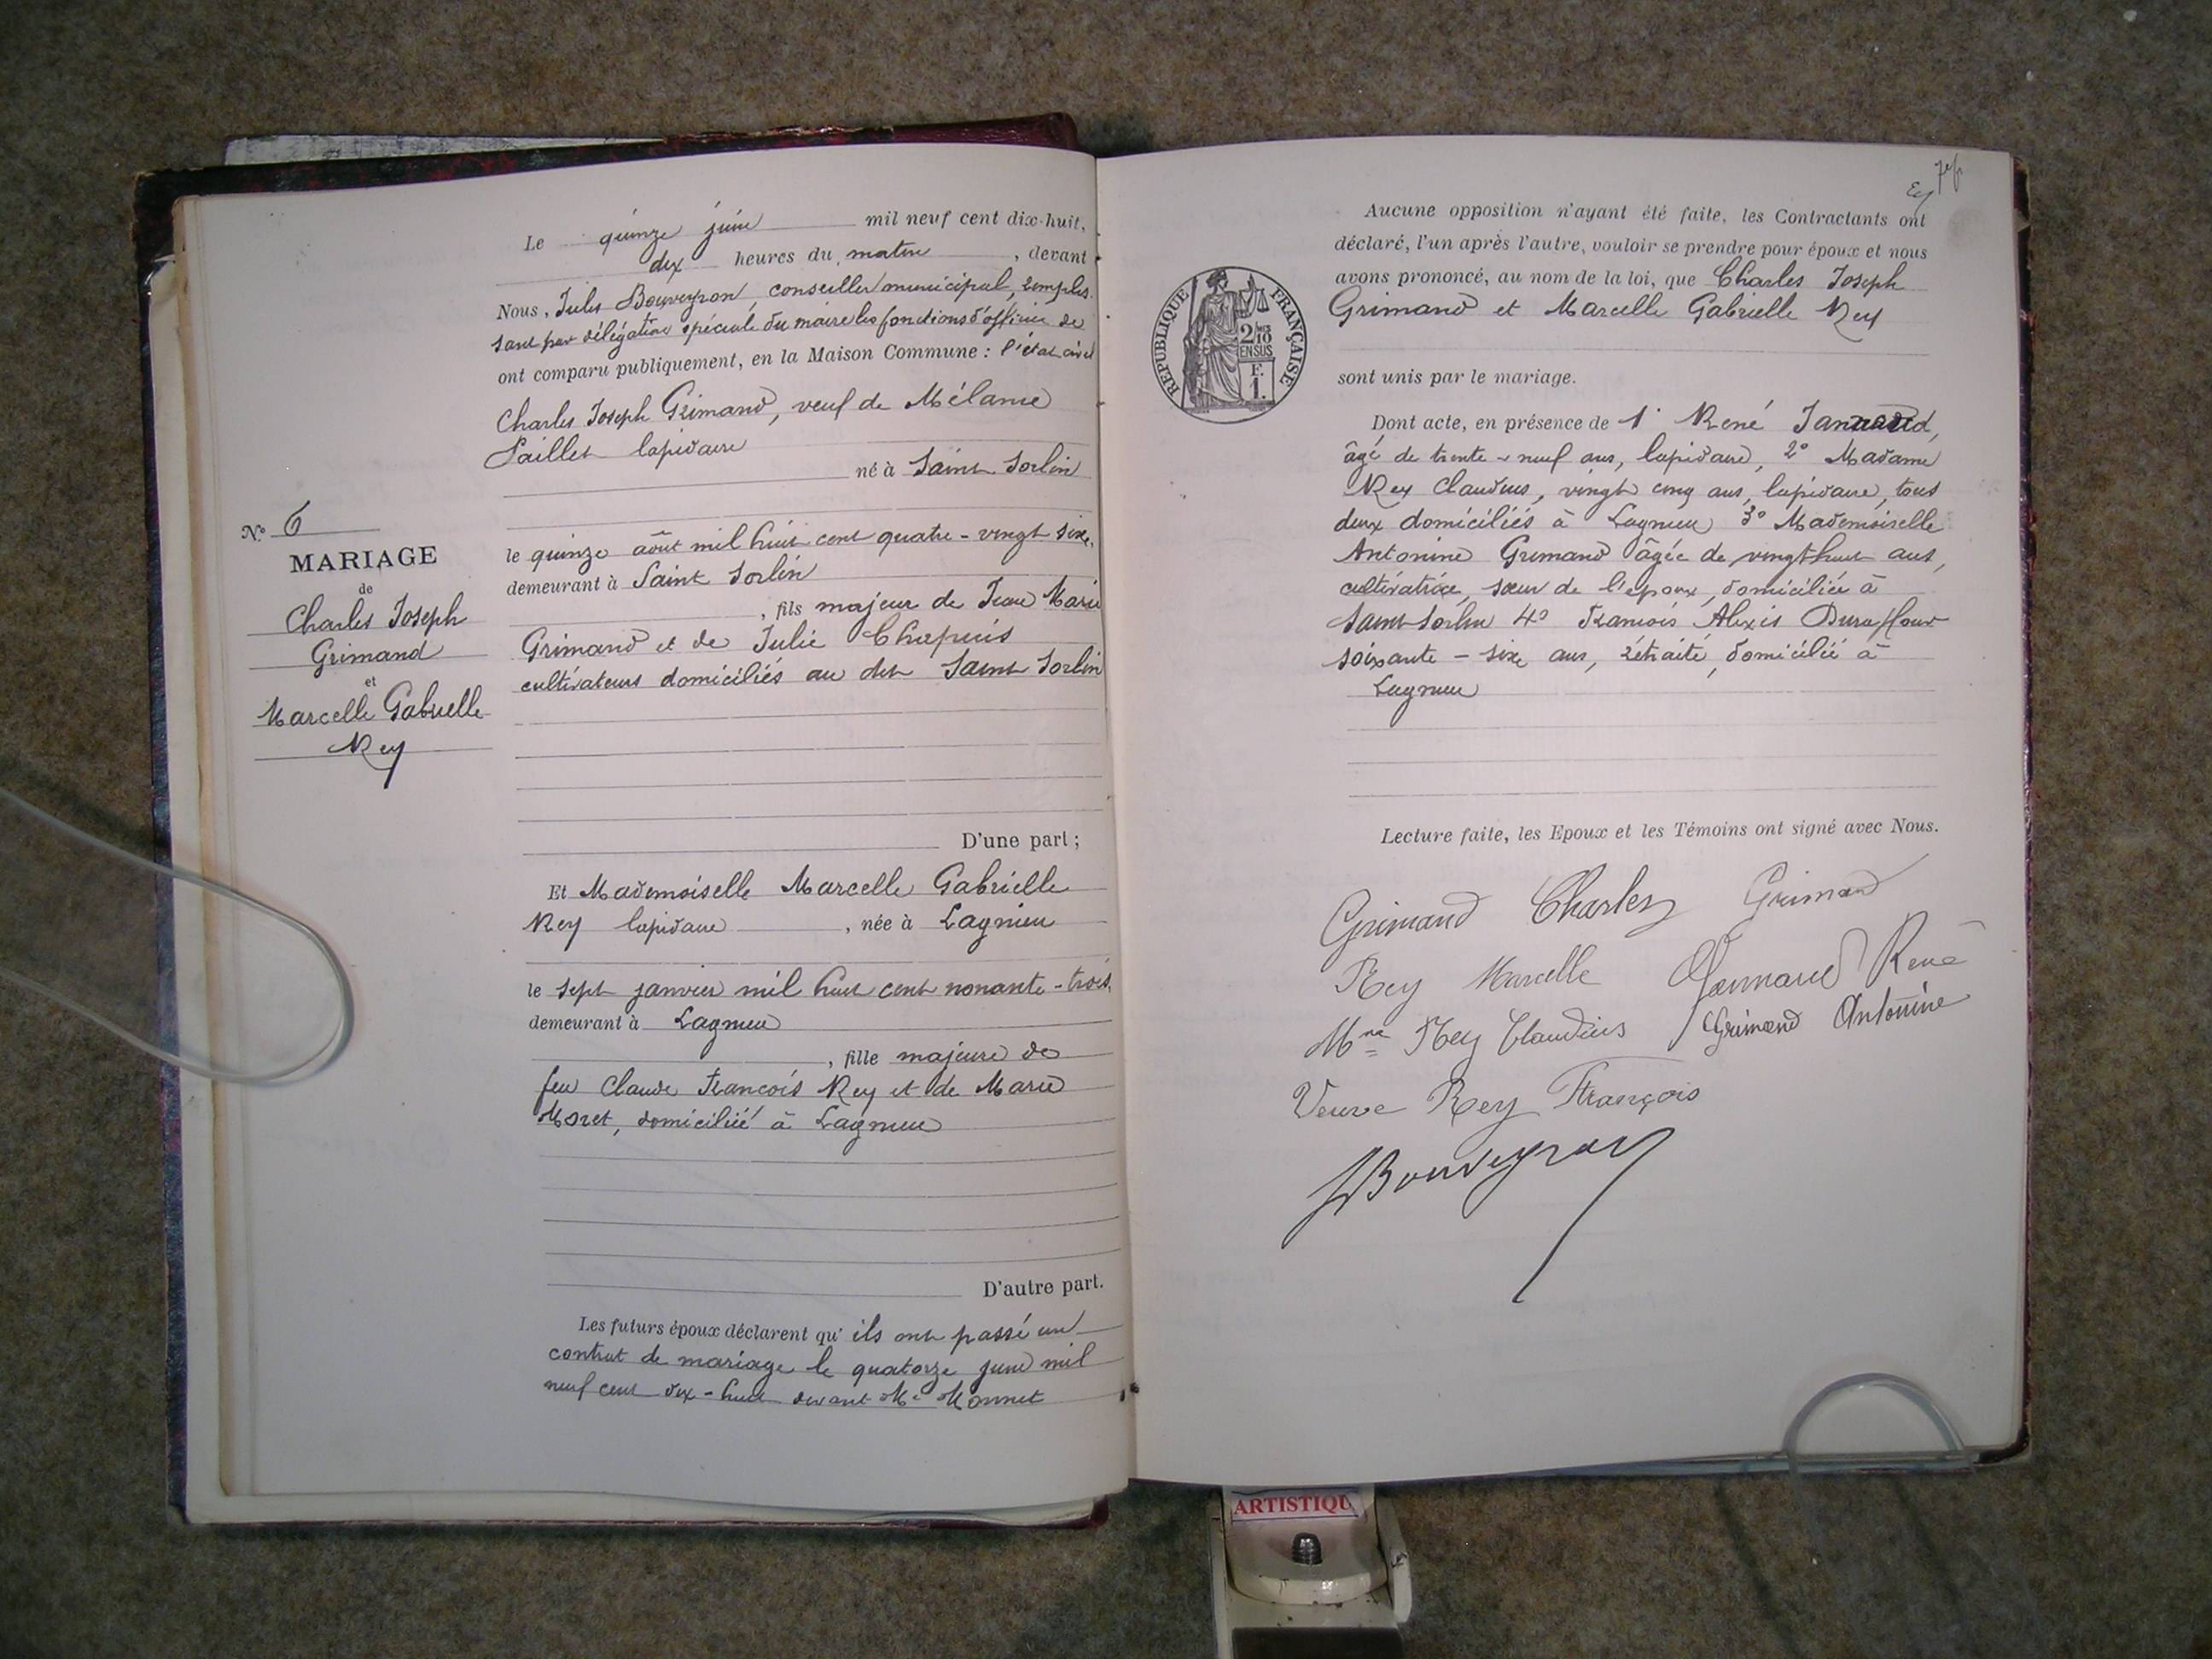 Le quinze juin mil neuf cent dix-huit,
dix heures du matin, devant
Nous, Jules Bouveyron, conseiller municipal, remplis
sant par délégation spéciale du maire les fonctions d'officier de
ont comparu publiquement, en la Maison Commune : l'état civil
Charles Joseph Grimand, veuf de Mélanie
Saillet lapidaire
né à Saint Sorlin
le quinze août mil huit cent quatre-vingt six,
demeurant à Saint Sorlin
, fils majeur de Jean Marie
Grimand et de Julie Chapuis
cultivateurs domiciliés au dit Saint Sorlin
D'une part ;
Et Mademoiselle Marcelle Gabrielle
Rey lapidaire, née à Lagnieu
le sept janvier mil huit cent nonante-trois,
demeurant à Lagnieu
, fille majeure de
feu Claude François Rey et de Marie
Moret, domiciliée à Lagnieu
D'autre part.
Les futurs époux déclarent qu'ils ont passé un
contrat de mariage le quatorze juin mil
neuf cent dix-huit devant Me Monnet
N° 6
MARIAGE
de
Charles Joseph
Grimand
et
Marcelle Gabrielle
Rey
Aucune opposition n'ayant été faite, les Contractants ont
déclaré, l'un après l'autre, vouloir se prendre pour époux et nous
avons prononcé, au nom de la loi, que Charles Joseph
Grimand et Marcelle Gabrielle Rey
sont unis par le mariage.
RÉPUBLIQUE FRANÇAISE
2/10
EN SUS
F.
1.
Dont acte, en présence de 1° René
âgé de trente-neuf ans, lapidaire, 2° Madame
Rey Claudius, vingt cinq ans, lapidaire, tous
deux domiciliés à Lagnieu 3° Mademoiselle
Antonine Grimand âgée de vingt huit ans,
cultivatrice, sœur de l'époux, domiciliée à
Saint-Sorlin 4° François Alexis Duraffour
soixante-six ans, retraité, domicilié à
Lagnieu
Lecture faite, les Epoux et les Témoins ont signé avec Nous.
Grimand Charles Grimand
Rey Marcelle Jannand René
Mme Rey Claudius Grimand Antonine
Veuve Rey François
JBouveyron
ARTISTIQU